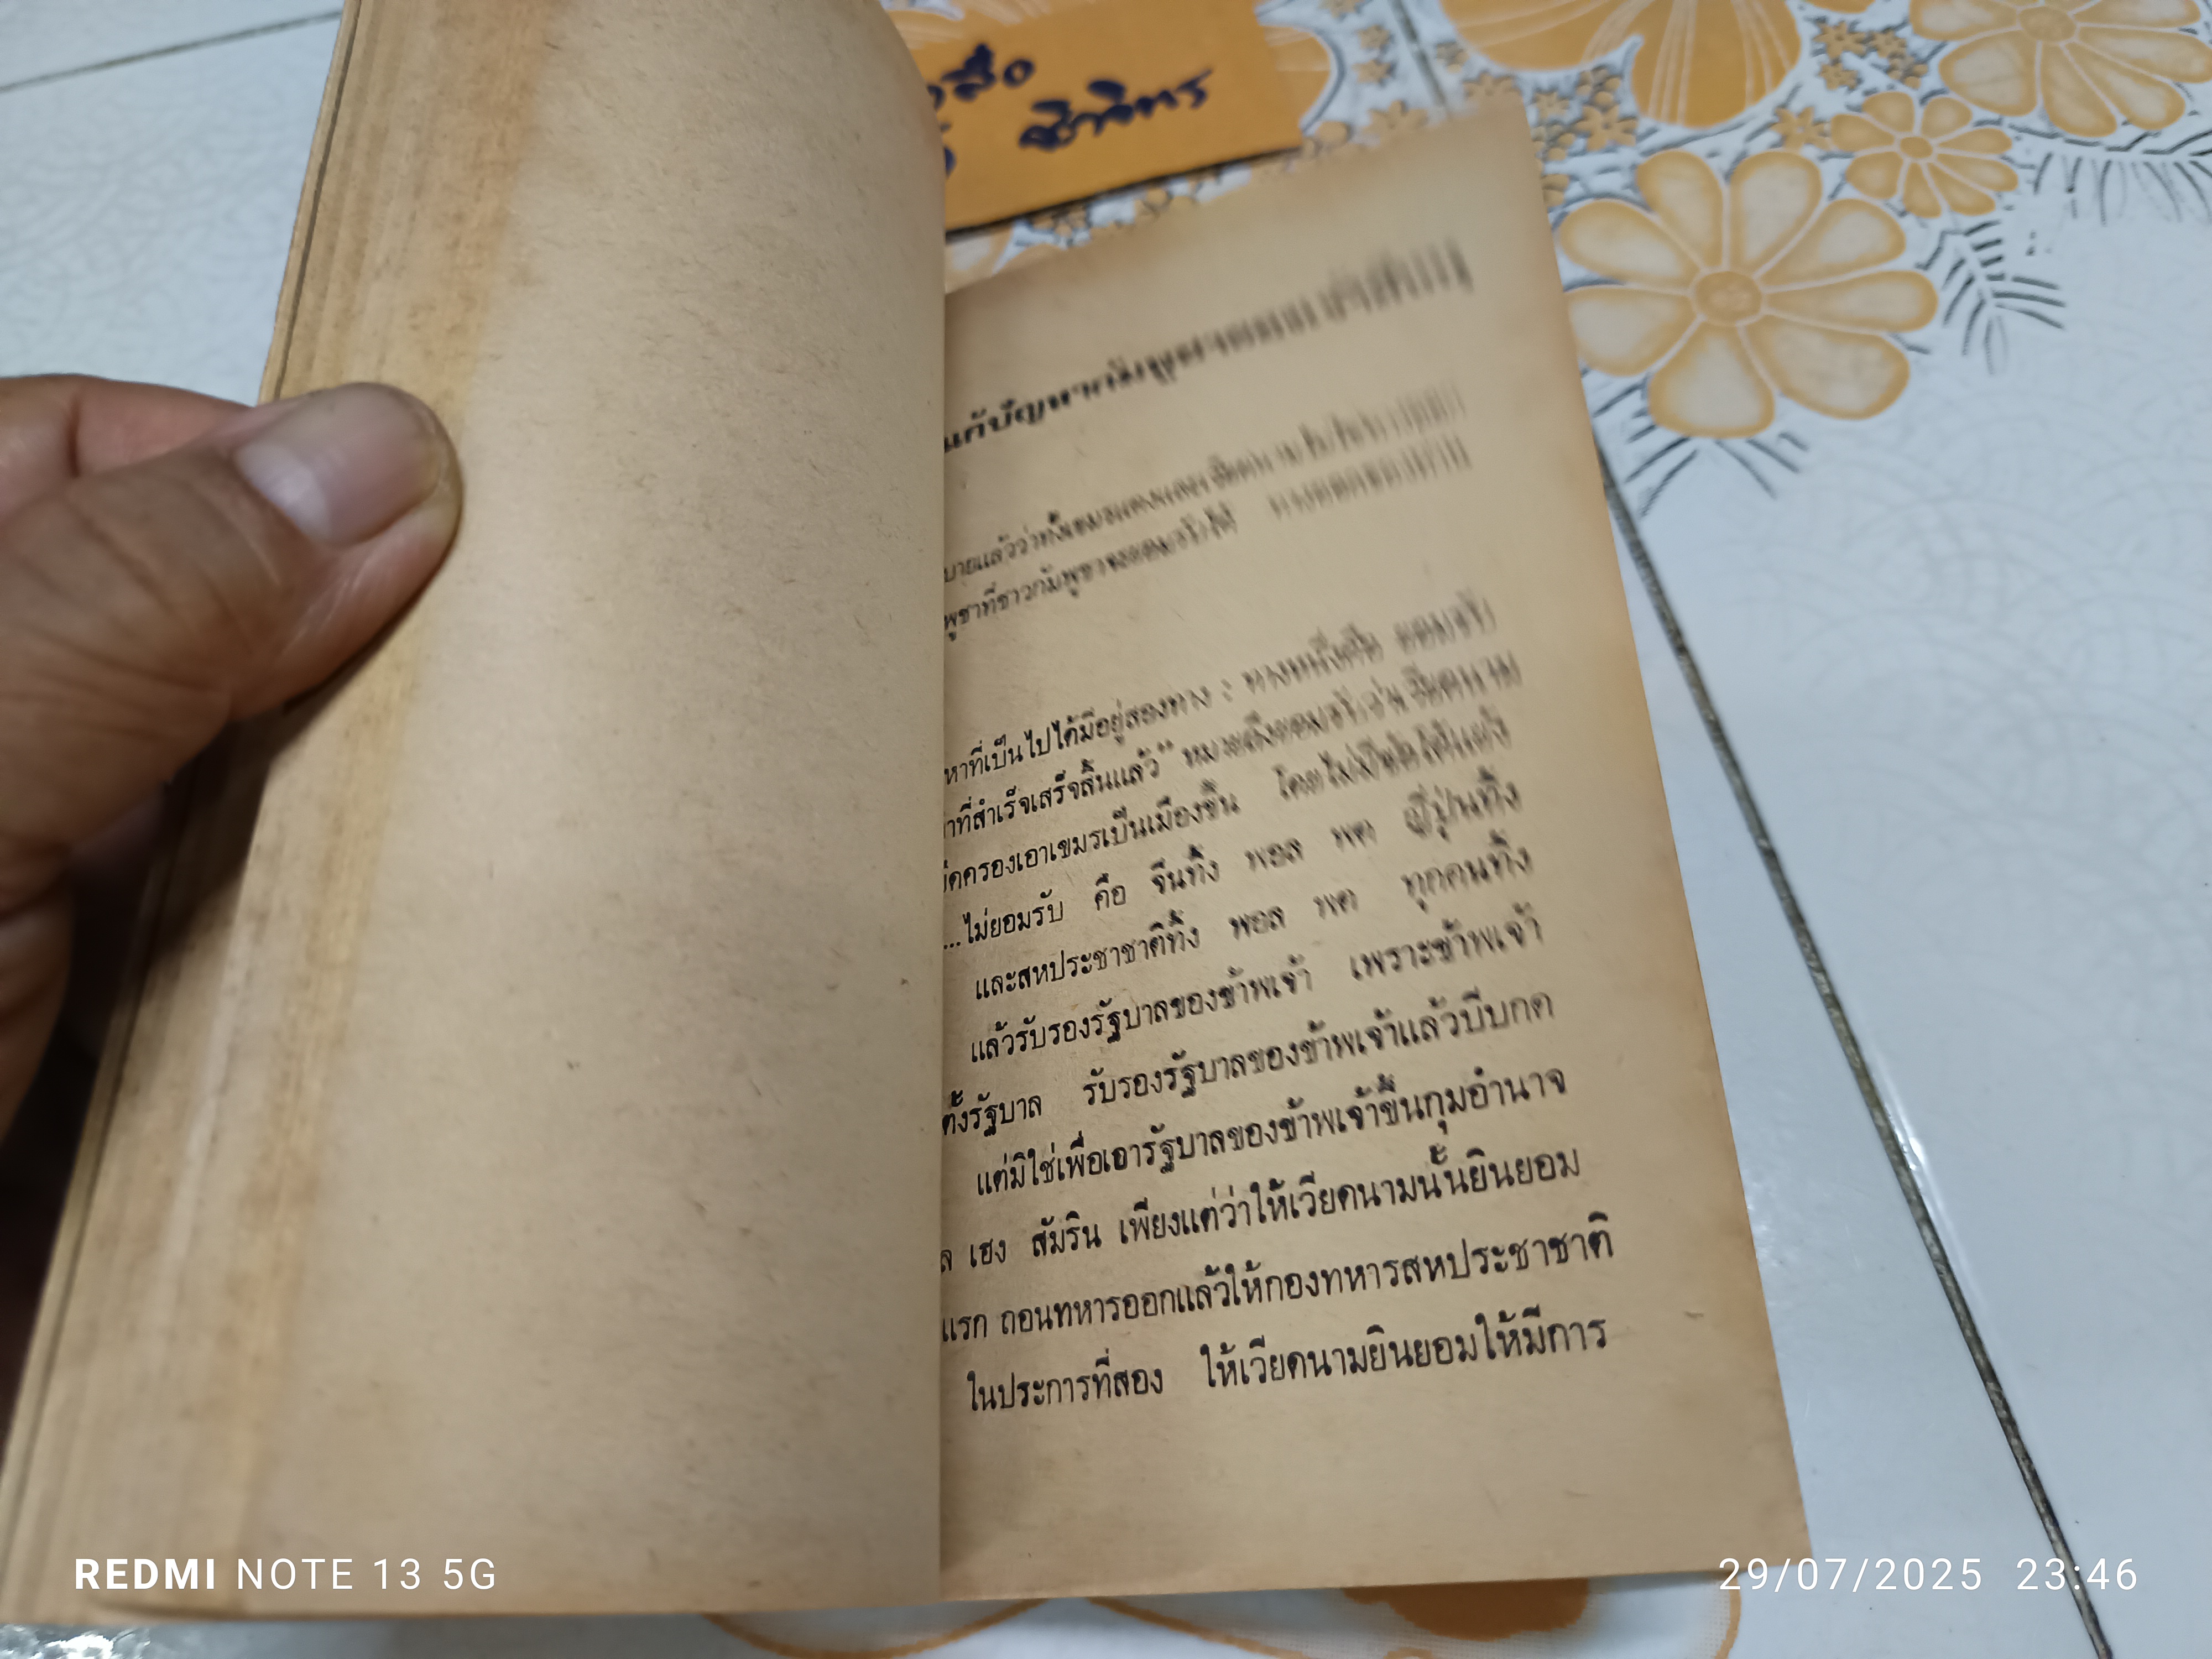 แก้ปัญหากัมพูชาตาม
บายแล้วว่าทั้งเขมรแดงและเวียดนาม
พูชาที่ชาวกัมพูชาจะยอมรับได้ ทางออกของท่าน
หาที่เป็นไปได้มีอยู่สองทาง : ทางหนึ่งคือ ยอมรับ
าที่สำเร็จเสร็จสิ้นแล้ว" หมายถึงยอมรับว่าเวียดนาม
ยึดครองเอาเขมรเป็นเมืองขึ้น โดยไม่มีข้อโต้แย้ง
...ไม่ยอมรับ คือ จีนทิ้ง พอล พต ญี่ปุ่นทิ้ง
และสหประชาชาติทิ้ง พอล พต ทุกคนทิ้ง
แล้วรับรองรัฐบาลของข้าพเจ้า เพราะข้าพเจ้า
ตั้งรัฐบาล รับรองรัฐบาลของข้าพเจ้าแล้วบีบกด
แต่มิใช่เพื่อเอารัฐบาลของข้าพเจ้าขึ้นกุมอำนาจ
ล เฮง สัมริน เพียงแต่ว่าให้เวียดนามนั้นยินยอม
แรก ถอนทหารออกแล้วให้กองทหารสหประชาชาติ
ในประการที่สอง ให้เวียดนามยินยอมให้มีการ
REDMI NOTE 13 5G
29/07/2025 23:46